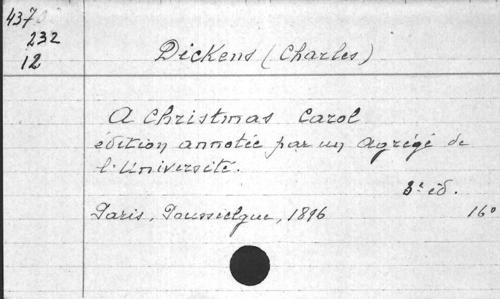 437
232
12
Dickens (Charles)
A Christmas Carol
édition annotée par un Agrégé de
l'Université.
3e éd.
Paris, Poussielgue, 1896
16°